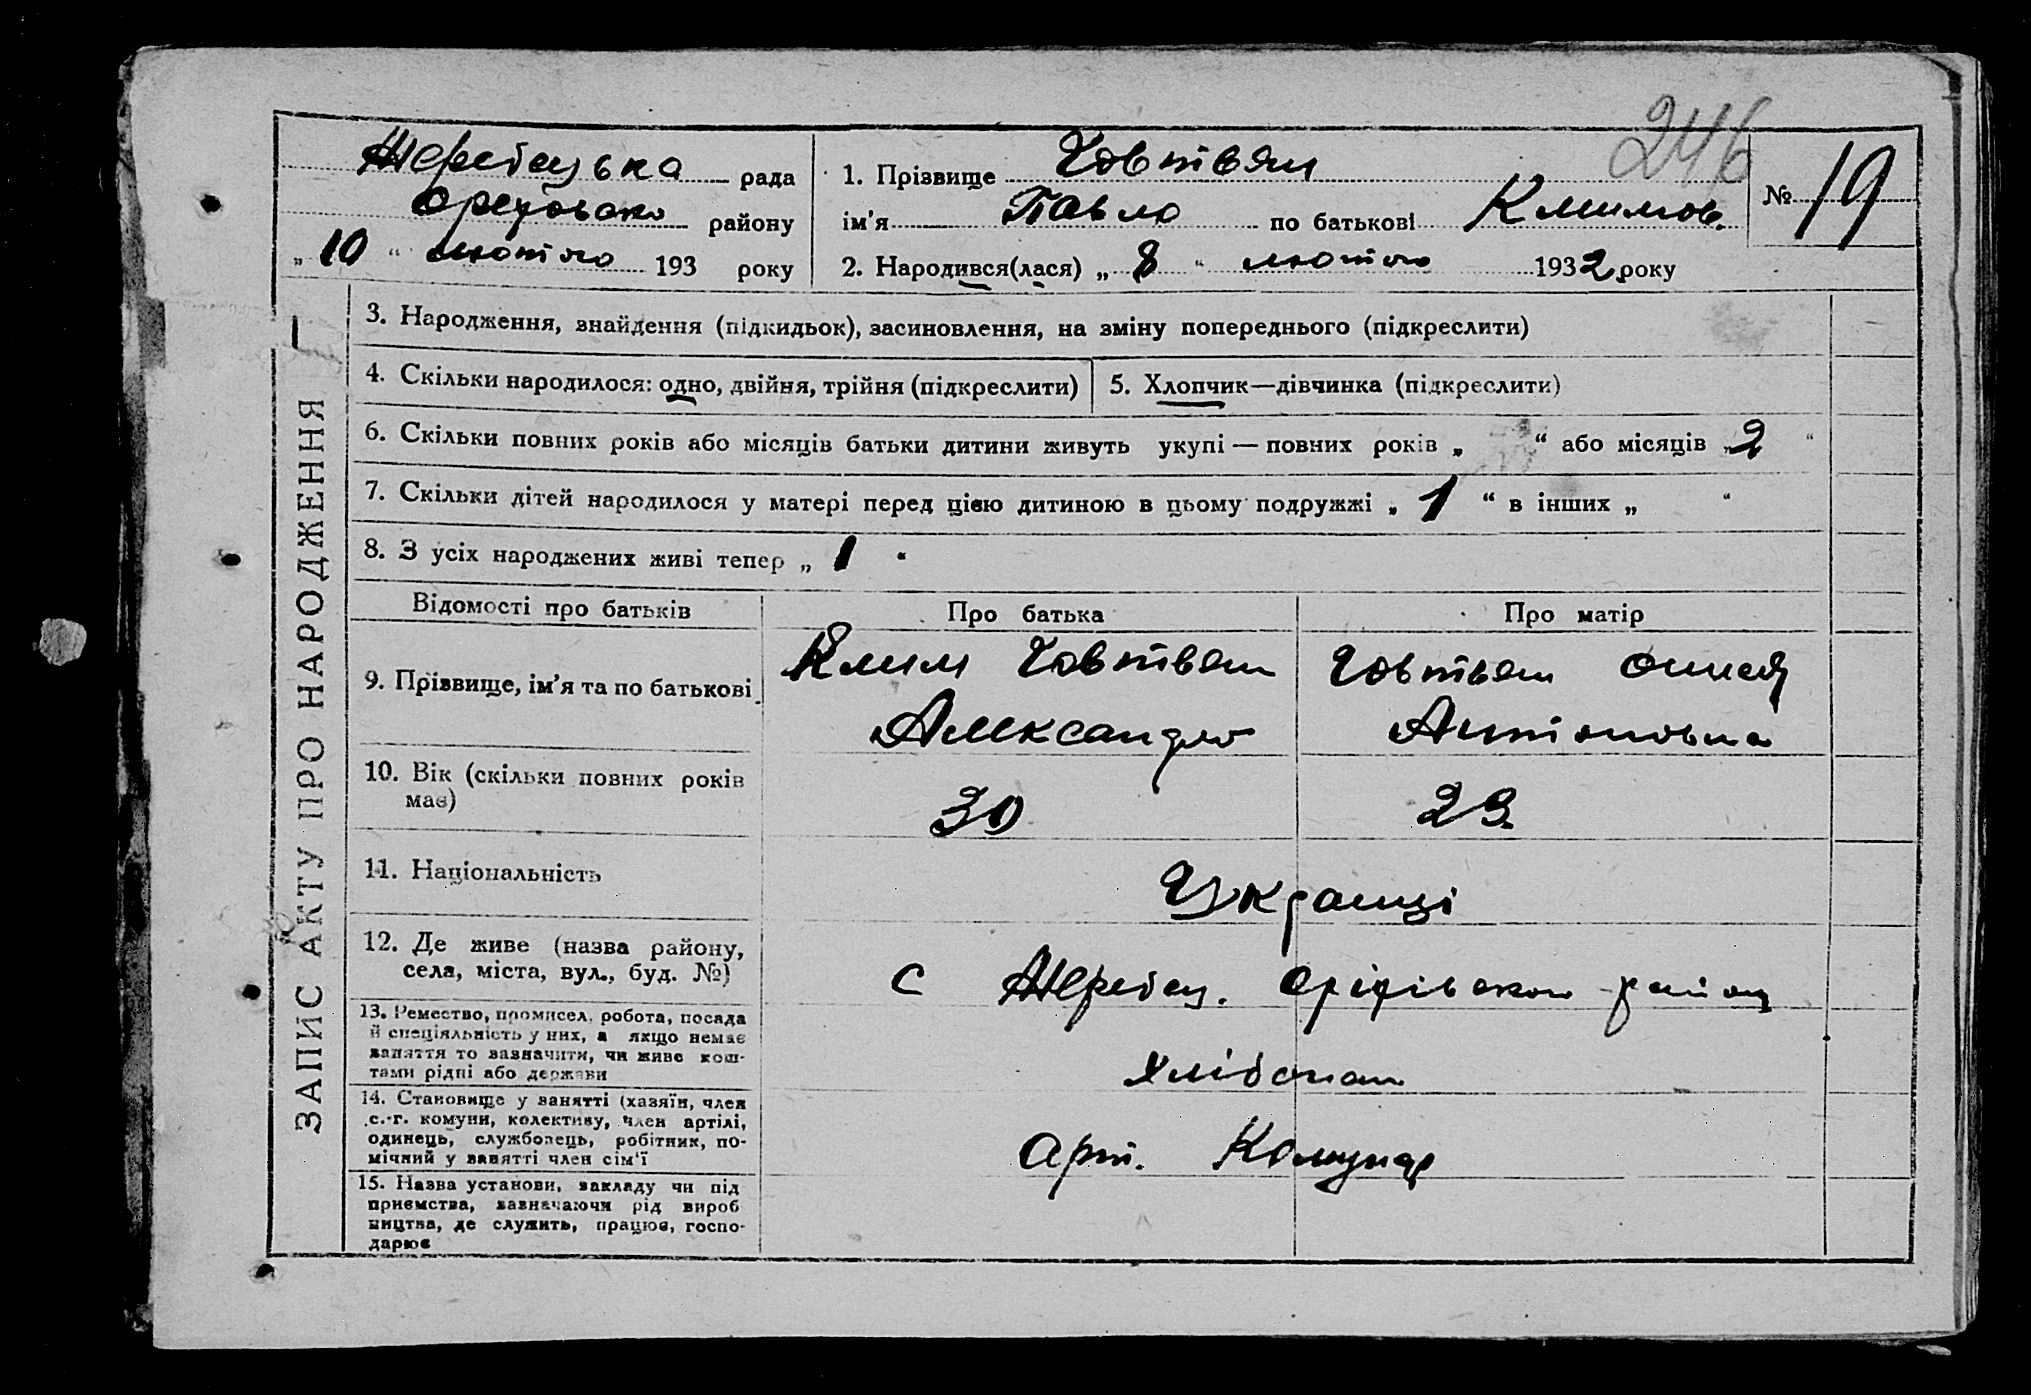 246
Жеребецька рада
Оріхівсько району
„ 10 “ лютого 193 року
1. Прізвище Човтвян
ім’я Павло по батькові Климов.
№ 19
2. Народився(лася) „ 8 “ лютого 1932 року
ЗАПИС АКТУ ПРО НАРОДЖЕННЯ
3. Народження, знайдення (підкидьок), засиновлення, на зміну попереднього (підкреслити)
4. Скільки народилося: одно, двійня, трійня (підкреслити)
5. Хлопчик—дівчинка (підкреслити)
6. Скільки повних років або місяців батьки дитини живуть укупі — повних років „ “ або місяців „ 2 “
7. Скільки дітей народилося у матері перед цією дитиною в цьому подружжі „ 1 “ в інших „ “
8. З усіх народжених живі тепер „ 1 “
Відомості про батьків
Про батька
Про матір
9. Прізвище, ім’я та по батькові
Клим Човтвян
Александро
Човтвян
Антоновна
10. Вік (скільки повних років
має)
30
23
11. Національність
Українці
12. Де живе (назва району,
села, міста, вул., буд. №)
с Жеребец. Оріхівского району
13. Ремество, промисел, робота, посада
й спеціяльність у них, а якщо немає
заняття то зазначити, чи живе кош-
тами рідні або держави
Хлібопаш
14. Становище у занятті (хазяїн, член
с.-г. комуни, колективу, член артілі,
одинець, службовець, робітник, по-
мічний у занятті член сім'ї
Арт. Комунар
15. Назва установи, закладу чи під
приємства, зазначаючи рід вироб
ництва, де служить, працює, госпо-
дарює